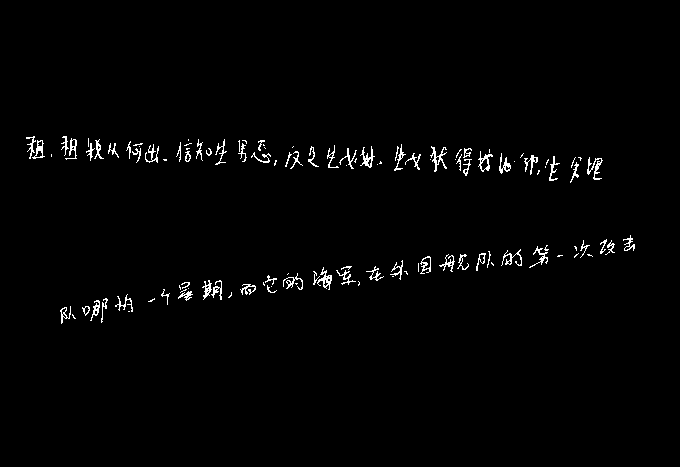 租.租税从何出.信知生男恶,反是生女好.生女犹得嫁比邻,生男埋
队哪怕一个星期,而它的海军,在外国舰队的第一次攻击